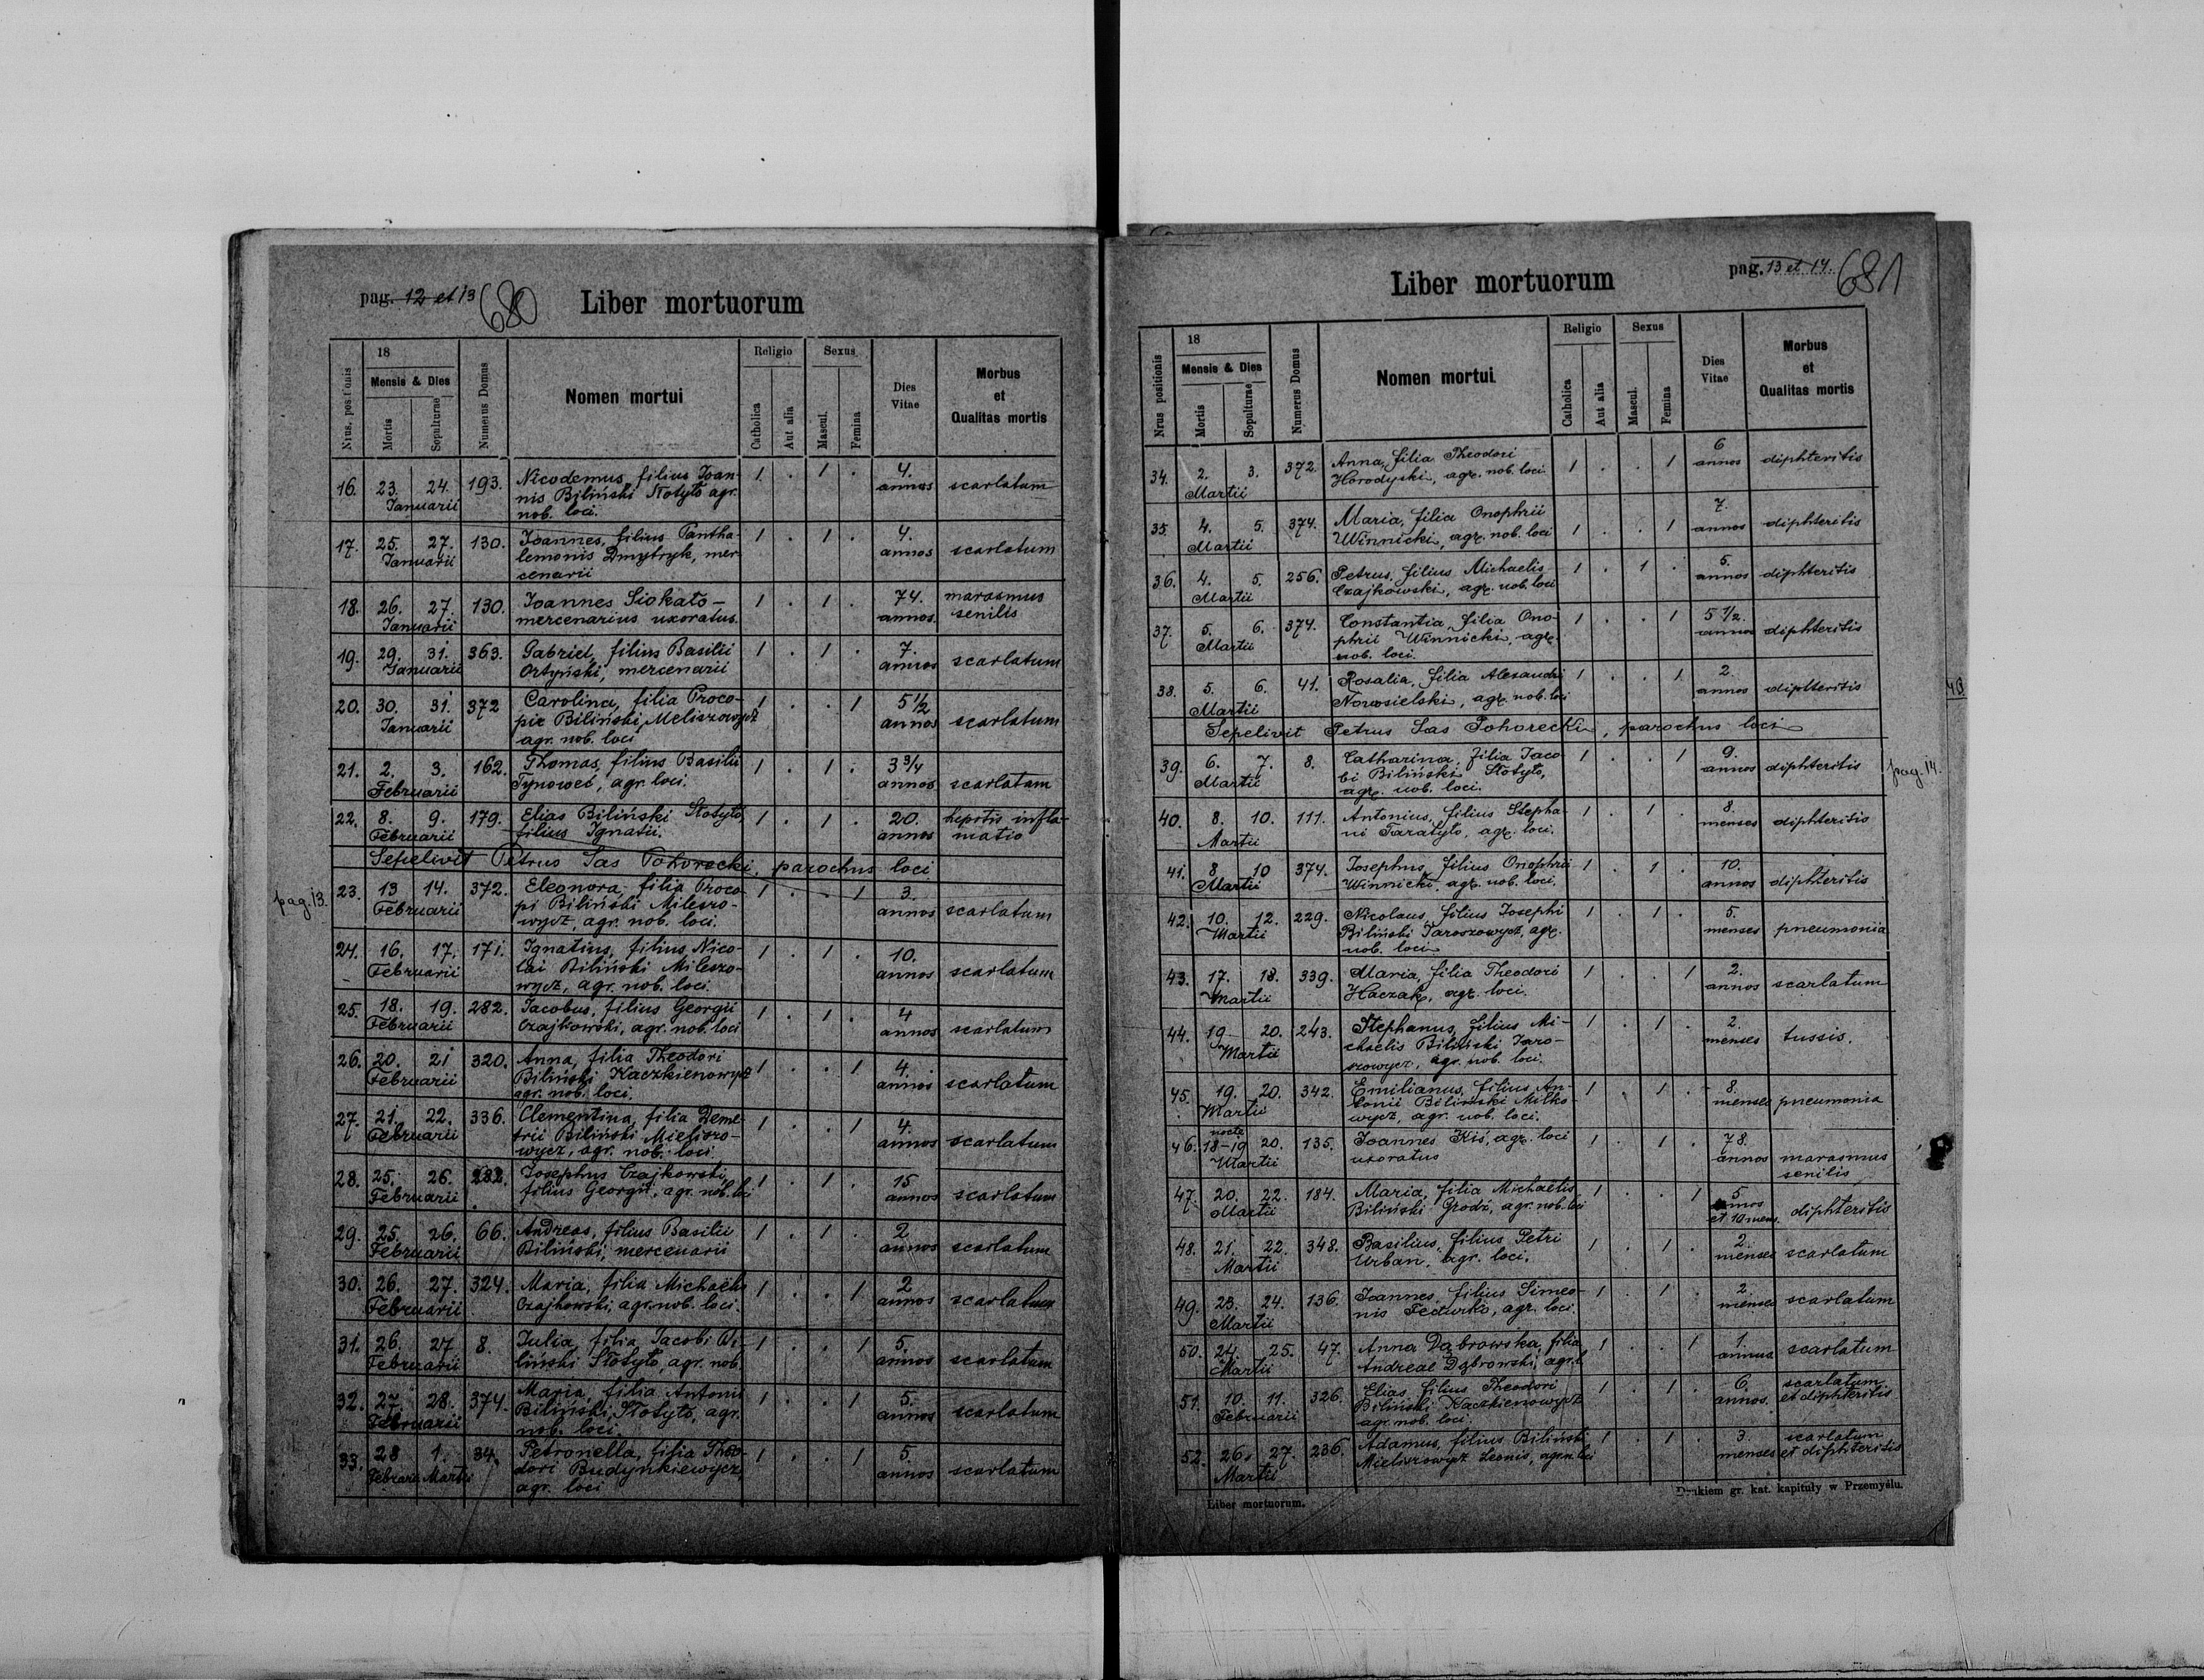 pag. 12 et 13
680
Liber mortuorum
Nrus. positionis
18
Mensis & Dies
Mortis
Sepulturae
Numerus Domus
Nomen mortui
Religio
Catholica
Aut alia
Sexus
Mascul.
Femina
Dies
Vitae
Morbus
et
Qualitas mortis
16. 23. 24. 193. Nicodemus, filius Ioan- 1 . 1 . 4.
Ianuarii nis Biliński Stotyło agr. annos scarlatum
nob. loci.
17. 25. 27. 130. Ioannes, filius Pantha- 1 . 1 . 4.
Ianuarii lemonis Dmytryk, mer- annos scarlatum
cenarii
18. 26. 27. 130. Ioannes Siokało – 1 . 1 . 74. marasmus
Ianuarii mercenarius uxoratus. annos senilis
19. 29. 31. 363. Gabriel, filius Basilii 1 . 1 . 7.
Ianuarii Ortyński, mercenarii annos scarlatum
20. 30. 31. 372 Carolina, filia Proco- 1 . . 1 5 1/2
Ianuarii pii Biliński Meliszowycz annos scarlatum
agr. nob. loci
21. 2. 3. 162. Thomas, filius Basilii 1 . 1 . 3 3/4
Februarii Tynoweć, agr. loci. annos scarlatum
22. 8. 9. 179. Elias Biliński Stotyło 1 . 1 . 20. hepotis infla-
Februarii filius Ignatii. annos matio
Sepelivit Petrus Sas Pohorecki, parochus loci
pag. 13.
23. 13 14. 372. Eleonora, filia Proco- 1 . . 1 3.
Februarii pi Biliński Mileszo- annos scarlatum
wycz, agr. nob. loci.
24. 16. 17. 171. Ignatius, filius Nico- 1 . 1 . 10.
Februarii lai Biliński Mileszo- annos scarlatum
wycz, agr. nob. loci.
25. 18. 19. 282. Iacobus, filius Georgii 1 . 1 . 4
Februarii Czajkowski, agr. nob. loci annos scarlatum
26. 20. 21 320. Anna, filia Theodori 1 . . 1 4.
Februarii Biliński Kaczkienowycz annos scarlatum
agr. nob. loci.
27. 21. 22. 336. Clementina, filia Deme- 1 . . 1 4.
Februarii trii Biliński Mieliszo- annos scarlatum
wycz, agr. nob. loci.
28. 25. 26. 282. Iosephus Czajkowski, 1 . 1 . 15
Februarii filius Georgii, agr. nob. loci annos scarlatum
29. 25. 26. 66. Andreas, filius Basilii 1 . 1 . 2
Februarii Biliński, mercenarii annos scarlatum
30. 26. 27. 324. Maria, filia Michaelis 1 . . 1 2
Februarii Czajkowski, agr. nob. loci. annos scarlatum
31. 26. 27 8. Iulia, filia Iacobi Bi- 1 . . 1 5.
Februarii liński Stotyło, agr. nob. annos scarlatum
32. 27. 28. 374. Maria, filia Antonii 1 . . 1 5.
Februarii Biliński, Stotyło, agr. annos scarlatum
nob. loci.
33. 28 1. 34. Petronella, filia Theo- 1 . . 1 5.
Martii dori Budynkiewycz, annos scarlatum
agr. loci
Liber mortuorum
pag. 13 et 14.
681
Nrus positionis
18
Mensis & Dies
Mortis
Sepulturae
Numerus Domus
Nomen mortui
Religio
Catholica
Aut alia
Sexus
Mascul.
Femina
Dies
Vitae
Morbus
et
Qualitas mortis
34. 2. 3. 372. Anna, filia Theodori 1 . . 1 6 diphteritis
Martii Horodyski, agr. nob. loci. annos
35. 4. 5. 374. Maria, filia Onophrii 1 . . 1 7. diphteritis
Martii Winnicki, agr. nob. loci annos
36. 4. 5. 256. Petrus, filius Michaelis 1 . 1 . 5. diphteritis
Martii Czajkowski, agr. nob. loci annos
37. 5. 6. 374. Constantia, filia Ono- 1 . . 1 5 1/2. diphteritis
Martii phrii Winnicki, agr. annos
nob. loci.
38. 5. 6. 41. Rosalia, filia Alexandri 1 . . 1 2. diphteritis
Martii Nowosielski, agr. nob. loci annos
Sepelivit Petrus Sas Pohorecki, parochus loci
39. 6. 7. 8. Catharina, filia Iaco- 1 . . 1 9. diphteritis
Martii bi Biliński Stotyło, annos
agr. nob. loci.
pag. 14.
40. 8. 10. 111. Antonius, filius Stepha- 1 . 1 . 8. diphteritis
Martii ni Taratyło, agr. loci. menses
41. 8 10 374. Iosephus, filius Onophrii 1 . 1 . 10. diphteritis
Martii Winnicki, agr. nob. loci. annos
42. 10. 12. 229. Nicolaus, filius Iosephi 1 . 1 . 5.
Martii Biliński Jaroszowycz, agr. menses pneumonia
nob. loci
43. 17. 18. 339. Maria, filia Theodori 1 . . 1 2.
Martii Haczak, agr. loci. annos scarlatum
44. 19– 20. 243. Stephanus, filius Mi- 1 . 1 . 2.
Martii chaelis Biliński Jaro- menses tussis.
szowycz, agr. nob. loci.
45. 19. 20. 342. Emilianus, filius An- 1 . 1 . 8.
Martii tonii Biliński Milko- menses pneumonia
wycz, agr. nob. loci.
nocte
46. 18–19 20. 135. Ioannes Kiś, agr. loci 1 . 1 . 78.
Martii uxoratus annos marasmus
senilis
47. 20. 22. 184. Maria, filia Michaelis 1 . . 1 5
Martii Biliński Grodź, agr. nob. loci annos diphteritis
et 10 mens.
48. 21. 22. 348. Basilius, filius Petri 1 . 1 . 2.
Martii Urban, agr. loci. menses scarlatum
49. 23. 24. 136. Ioannes, filius Simeo- 1 . 1 . 2.
Martii nis Fedurko, agr. loci. menses scarlatum
50. 24. 25. 47. Anna Dąbrowska, filia 1 . . 1 1.
Martii Andreae Dąbrowski, agr. l. annus scarlatum
51. 10. 11. 326. Elias, filius Theodori 1 . 1 . 6. scarlatum
Februarii Biliński Kaczkienowycz annos. et diphteritis
agr. nob. loci.
52. 26. 27. 236. Adamus, filius Biliński 1 . 1 . 3. scarlatum
Martii Mieliszowycz Leonis, agr. n. loci menses et diphteritis
Liber mortuorum.
Drukiem gr. kat. kapituły w Przemyślu.